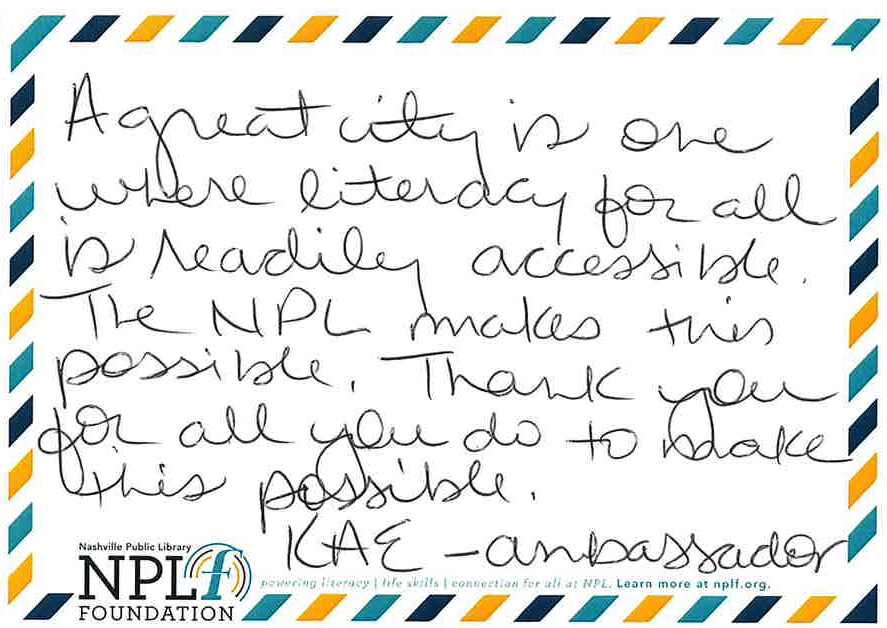 A great city is one
where literacy for all
is readily accessible.
The NPL makes this
possible. Thank you
for all you do to make
this possible.
KAE - ambassador
Nashville Public Library
NPLf
FOUNDATION
powering literacy | life skills | connection for all at NPL. Learn more at nplf.org.